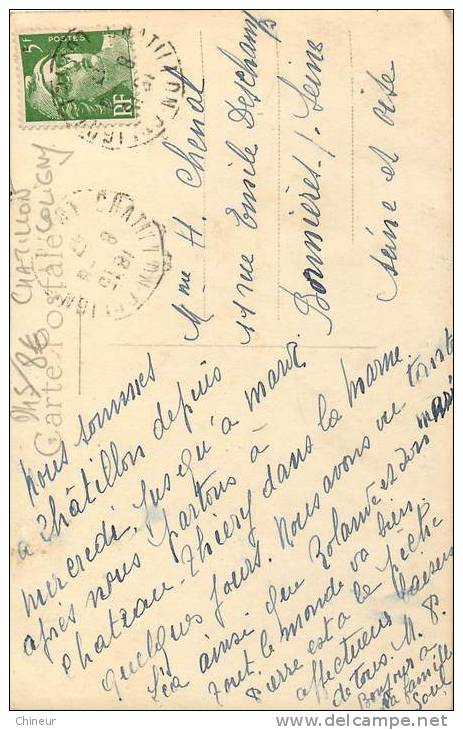 5F
POSTES
RF
CHATILLON COLIGNY
CHATILLON COLIGNY
18 15
8
CHATILLON
COLIGNY
Carte Postale
Mme H. Chenot
11 rue Emile Deschamps
Bonnières s/ Seine
Seine et Oise
Nous sommes
à Châtillon depuis
mercredi, jusqu'à mardi
après nous partons à
Chateau-Thiery dans la Marne
quelques jours. Nous avons vu tante
Léa ainsi que Rolande et son mari
tout le monde va bien.
Pierre est à la pêche
affectueux baisers
de tous. M. P.
Bonjour à
la famille
Chineur
www.delcampe.net